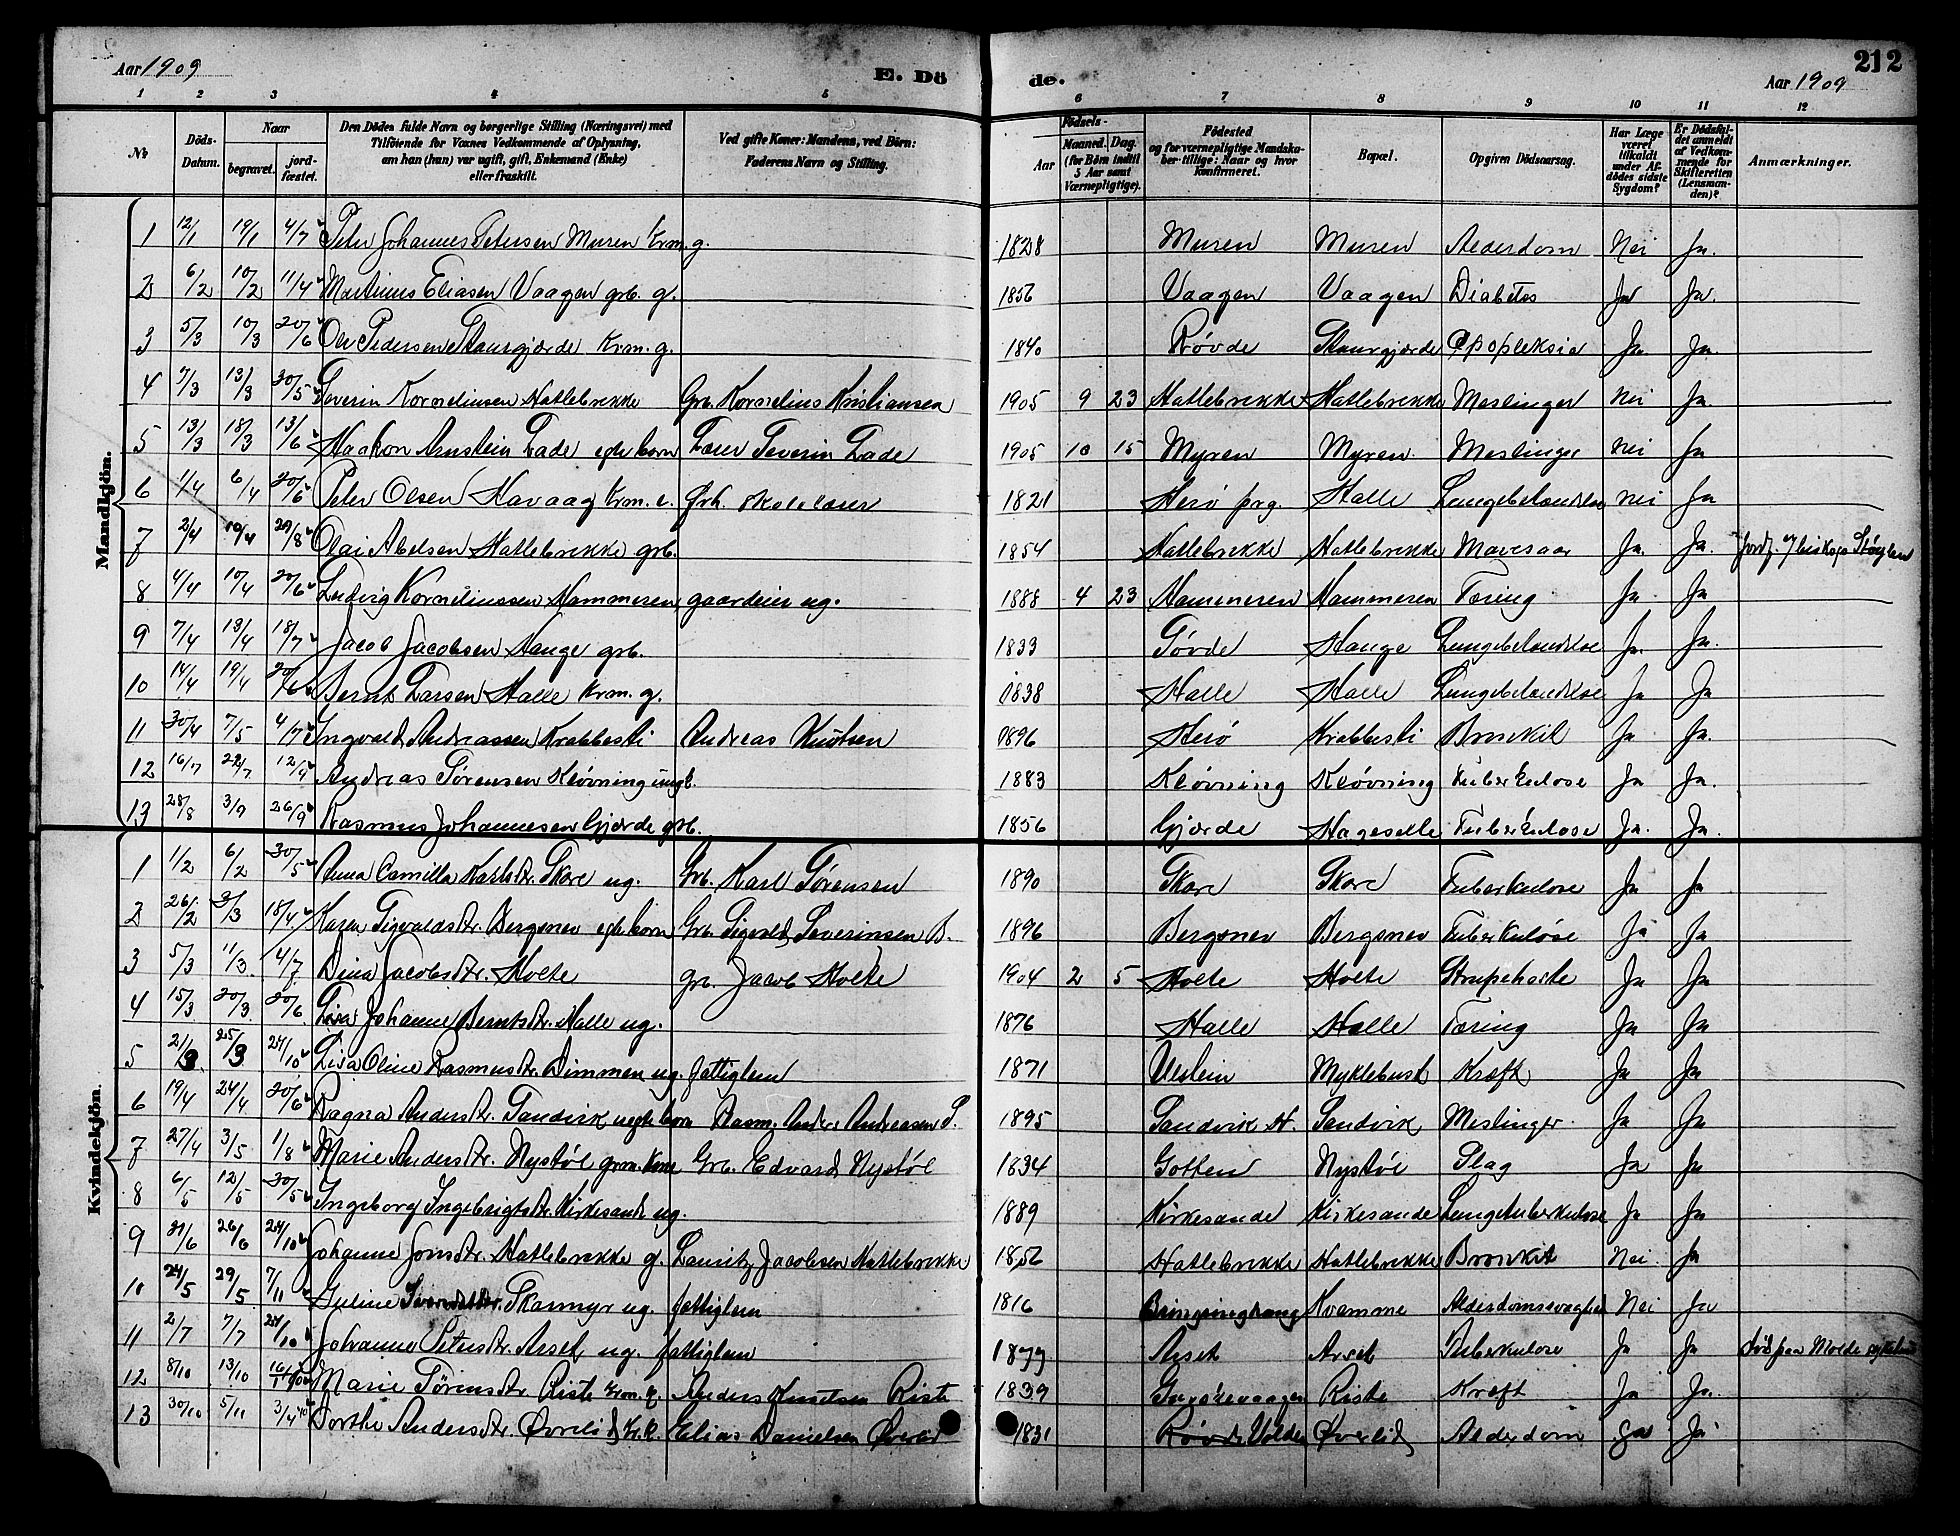 Aar 1909 E. Dö de. Aar 1909 212
1 2 3 4 5 6 7 8 9 10 11 12
No
Döds-Datum.
Naar
begravet.
jord-fæstet.
Den Dödes fulde Navn og borgerlige Stilling (Næringsvei) med Tilföiende for Voxnes Vedkommende af Oplysning, om han (hun) var ugift, gift, Enkemand (Enke) eller fraskilt.
Ved gifte Koner: Mandens, ved Börn: Faderens Navn og Stilling.
Födsels-
Aar
Maaned. Dag. (for Börn indtil 5 Aar samt Værnepligtige).
Födested og for værnepligtige Mandska-ber tillige: Naar og hvor konfirmeret.
Bopæl.
Opgiven Dödsaarsag.
Har Læge været tilkaldt under Af-dödes sidste Sygdom?
Er Dödsfal-det anmeldt af Vedkom-mende for Skifteretten (Lensman-den)?
Anmærkninger.
Mandkjön.
1 12/1 19/1 4/7 Peter Johannes Petersen Muren Krm. g. 1828 Muren Muren Alderdom Nei Ja.
2 6/2 10/2 11/4 Martinus Eliasen Vaagen grb. g. 1856 Vaagen Vaagen Diabetes Ja Ja.
3 5/3 10/3 20/6 Ole Pedersen Skaargjærde Krm. g. 1840 Røvde Skaargjærde Apopleksia Ja. Ja.
4 7/3 13/3 30/5 Severin Korneliussen Hatlebrekke Grb. Kornelius Kristiansen 1905 9 23 Hatlebrekke Hatlebrekke Meslinger Nei Ja.
5 13/3 18/3 13/6 Haakon Arnstein Lade egte barn Lærer Severin Lade 1905 10 15 Myren Myren. Meslinger Nei Ja
6 1/4 6/4 20/6 Peter Olsen Havaag Krm. e. Frh. skolelærer 1821 Herø prg. Halle Lungebetændelse Nei Ja
7 2/4 10/4 29/8 Olai Abelsen Hatlebrekke grb. 1854 Hatlebrekke Hatlebrekke Mavesaar Ja. Ja. Jordf. af biskop Støylen
8 4/4 10/4 20/6 Ludvig Korneliussen Hammeren, gaardeier ug. 1888 4 23 Hammeren Hammeren Tæring Ja Ja
9 7/4 13/4 18/7 Jacob Jacobsen Hauge grb. 1833 Søvde Hauge Lungebetændelse Ja. Ja.
10 14/4 19/4 20/6 Bernt Larsen Halle Krm. g. 1838 Halle Halle Lungebetændelse Ja Ja
11 30/4 7/5 4/7 Ingvald Andreassen Krabbesti Andreas Knutsen 1896 Herø Krabbesti Bronkit Ja Ja.
12 16/7 22/7 12/9 Andreas Sørensen Kløvning ungk. 1883 Kløvning Kløvning Tuberkulose Ja Ja.
13 28/8 3/9 26/9 Rasmus Johannesen Gjærde grb. 1856 Gjærde Hageselle Tuberkulose Ja. Ja.
Kvindekjön.
1 1/2 6/2 30/5 Anna Camilla Karlsdtr. Skare ug. Grb. Karl Sørensen 1890 Skare Skare Tuberkulose Ja Ja
2 26/2 3/3 18/4 Karen Sigvaldsdtr. Bergsnev egte barn Grb. Sigvald Severinsen B. 1896 Bergsnev Bergsnev Tuberkulose Ja Ja
3 5/3 11/3. 4/7 Dina Jacobsdtr. Holte grb. Jacob Holte 1904 2 5 Holte Holte Strupehoste Ja Ja
4 15/3 20/3. 20/6. Lisa Johanne Berntsdtr. Halle ug. 1876 Halle Halle Tæring Ja Ja
5 21/3. 25/3 24/10 Lisa Oline Rasmusdtr. Dimmen ug. fattiglem 1871 Ulstein Myklebust Kræft Ja Ja
6 19/4 24/4 20/6 Ragna Andersdtr. Sandvik uegte barn Rasm. Anders Andreasen S. 1895 Sandvik H. Sandvik Meslinger Ja Ja
7 27/4 3/5. 1/8 Marie Andersdtr. Nystøl grm. kone Grb. Edvard Nystøl 1834 Gotten Nystøl Slag Ja Ja
8 6/5 12/5 30/5 Ingeborg Ingebrigtsdtr. Kirkesande ug. 1889 Kirkesande Kirkesande Lungetuberkulose Ja Ja
9 21/6 26/6 24/10 Johanne Jonsdtr. Hatlebrekke g. Lauritz Jacobsen Hatlebrekke 1856 Hatlebrekke Hatlebrekke Bronkit Nei Ja
10 24/5 29/5. 7/11 Guline Iversdtr. Skarmyr ug. fattiglem 1816 Kvamme Alderdomssvaghed Nei Ja
11 2/7 7/7 24/10 Johanne Petersdtr. Arset ug. fattiglem 1877 Arset Arset Tuberkulose Ja Ja Död paa Molde
12 8/10 13/10 Marie Sørensdtr. Riste Krm. e. Anders Knutsen Riste 1839 Riste Kræft Ja Ja.
13 30/10 5/11 3/4 Dorthe Andersdtr. Øvrelid Elias Danielsen Øvrelid 1831 Røvde Volden Øvrelid Alderdom Ja Ja